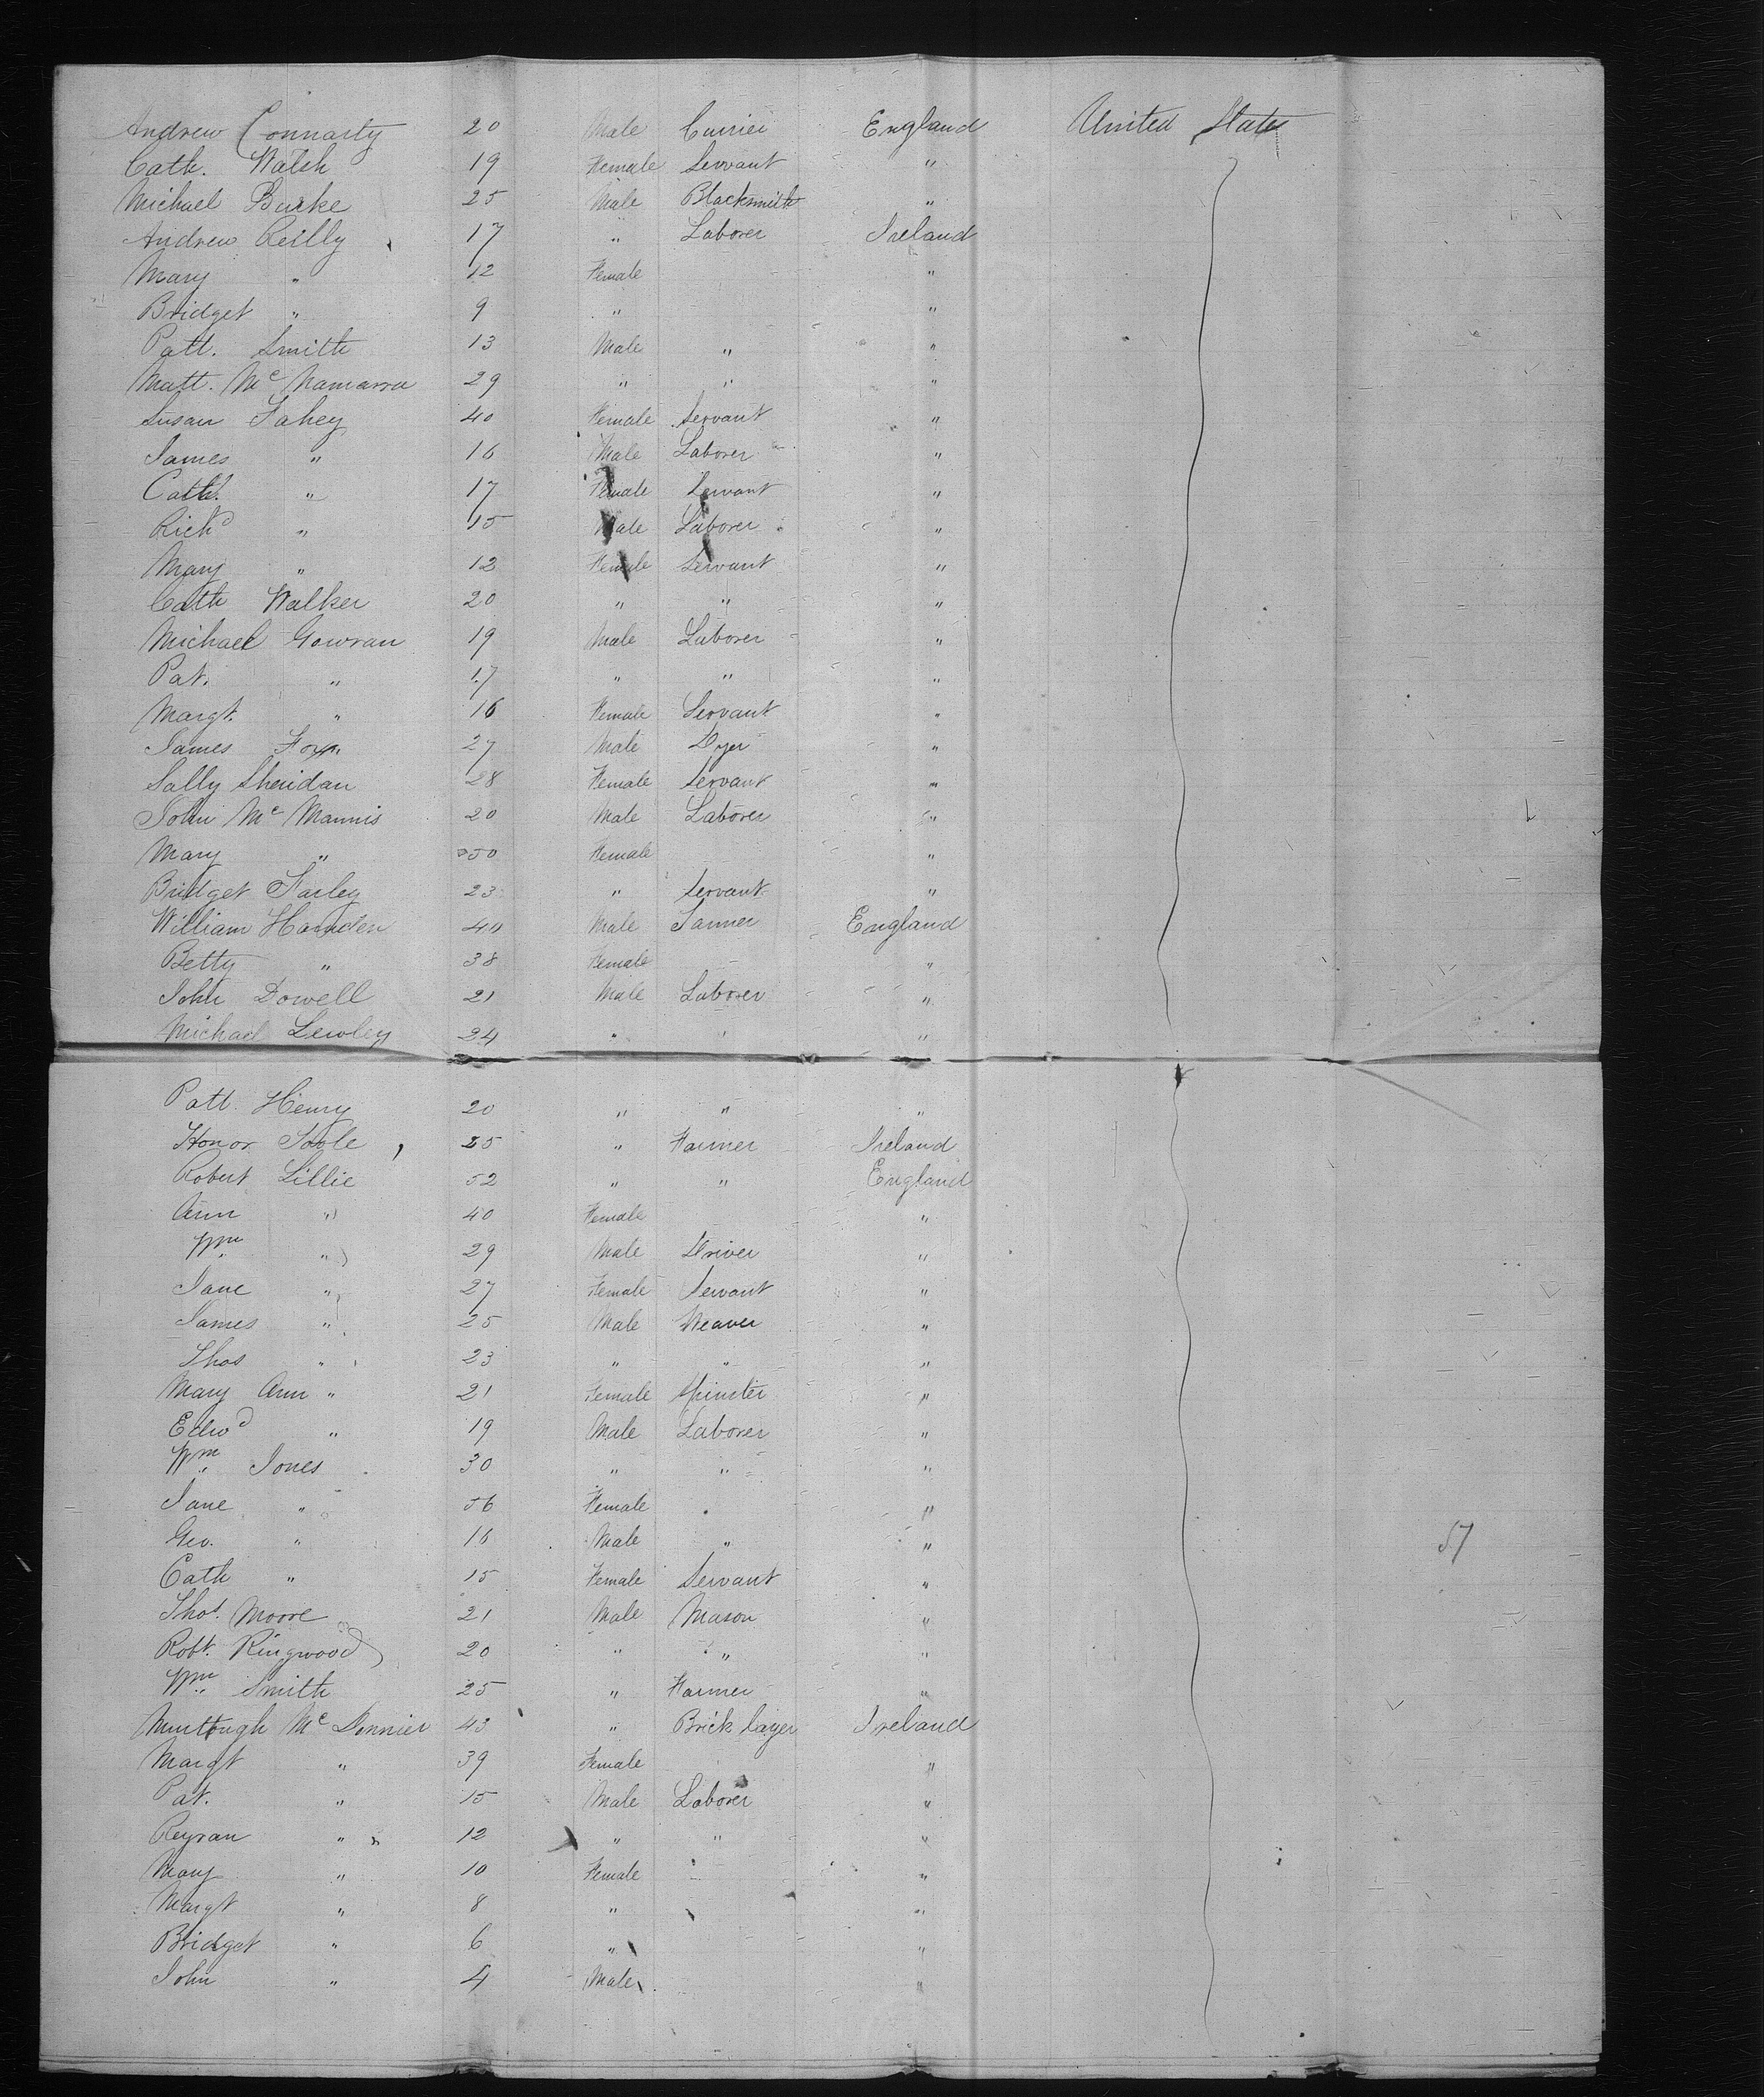 Andrew Connarty 20 Male Currier England United States
Cath. Walsh 19 Female Servant "
Michael Burke 25 Male Blacksmith "
Andrew Reilly 17 " Laborer Ireland
Mary " 12 Female "
Bridget " 9 " "
Patt. Smith 13 Male " "
Matt. Mc Namarra 29 " " "
Susan Fahey 40 Female Servant "
James " 16 Male Laborer "
Cath. " 17 Female Servant "
Richd " 15 Male Laborer "
Mary " 12 Female Servant "
Cath Walker 20 " " "
Michael Gowran 19 Male Laborer "
Pat. " 17 " " "
Margt. " 16 Female Servant "
James Fox 27 Male Dyer "
Sally Sheridan 28 Female Servant "
John Mc Mannis 20 Male Laborer "
Mary " 50 Female "
Bridget Farley 23 " Servant "
William 40 Male England
Betty " 38 Female "
John Dowell 21 Male Laborer "
Michael Lewley 24 " " "
Patt Henry 20 " " "
Honor Toole 25 " Farmer Ireland
Robert Lillie 52 " " England
Ann " 40 Female "
Wm " 29 Male Driver "
Jane " 27 Female Servant "
James " 25 Male Weaver "
Thos " 23 " " "
Mary Ann " 21 Female Spinster "
Edwd " 19 Male Laborer "
Wm Jones 30 " " "
Jane " 56 Female "
Geo. " 16 Male " "
Cath " 15 Female Servant "
Thos. Moore 21 Male Mason "
Robt. Ringwood 20 " " "
Wm Smith 25 " Farmer "
Murtough Mc Donnier 43 " Brick layer Ireland
Margt " 39 Female "
Pat. " 15 Male Laborer "
" 12 " " "
Mary " 10 Female "
Margt " 8 " "
Bridget " 6 " "
John " 4 Male "
57